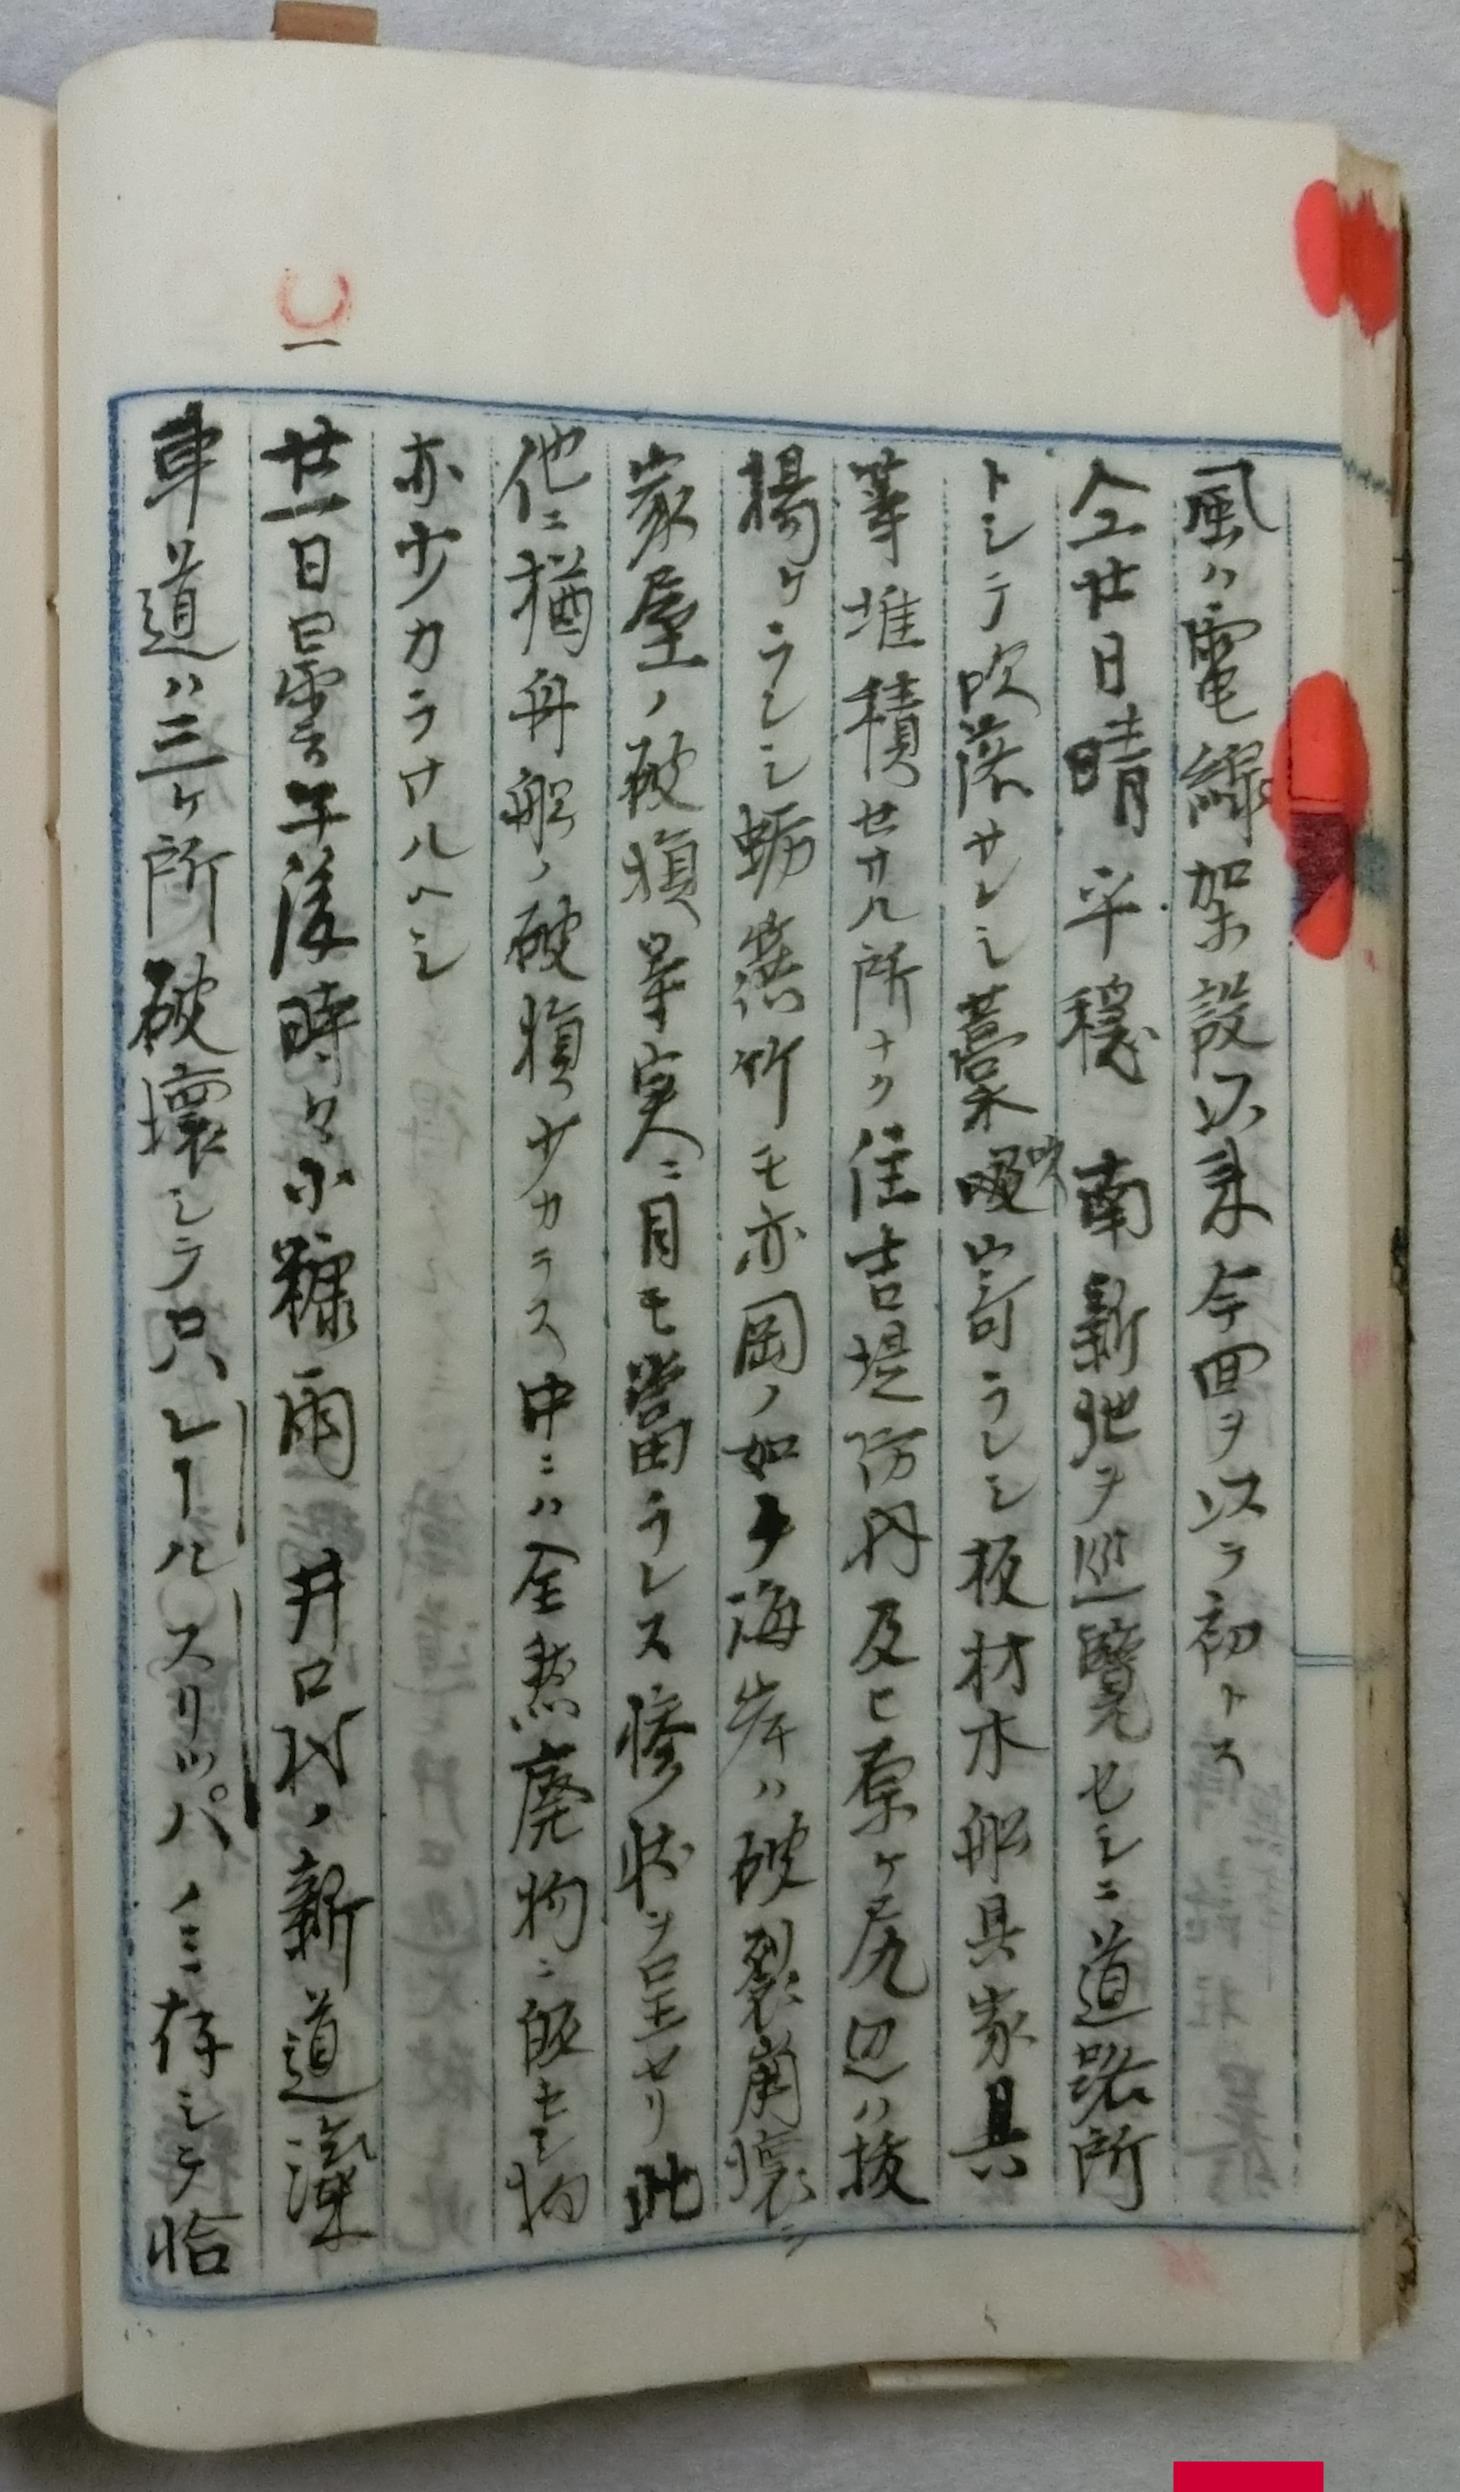 風ハ電線架設以来今回ヲ以テ初トス
仝廿日晴平穏　南新地ヲ巡覧セシニ道路所
トシテ吹落サレシ藁吹寄ラレシ板材木船具家具
等堆積セサル所ナク住吉堤防丹及ヒ原ケ尻辺ハ抜
揚ケラレシ蛎簇竹モ亦岡ノ如ク海岸ハ破裂崩壊シ
家屋ノ破損等実ニ目モ當ラレス惨状ヲ呈セリ此
他ニ猶舟船ノ破損少カラス中ニハ全然廃物ニ皈セシ物
亦少カラサルヘシ
一
廿一日曇午後時々小糠雨　井口村ノ新道滊
車道ハ三ケ所破壊シテ只レールスリッパノミ存シテ恰